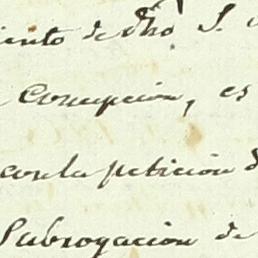 iento de dho S.
Concepcion, es
con la peticion d
Subrogacion de